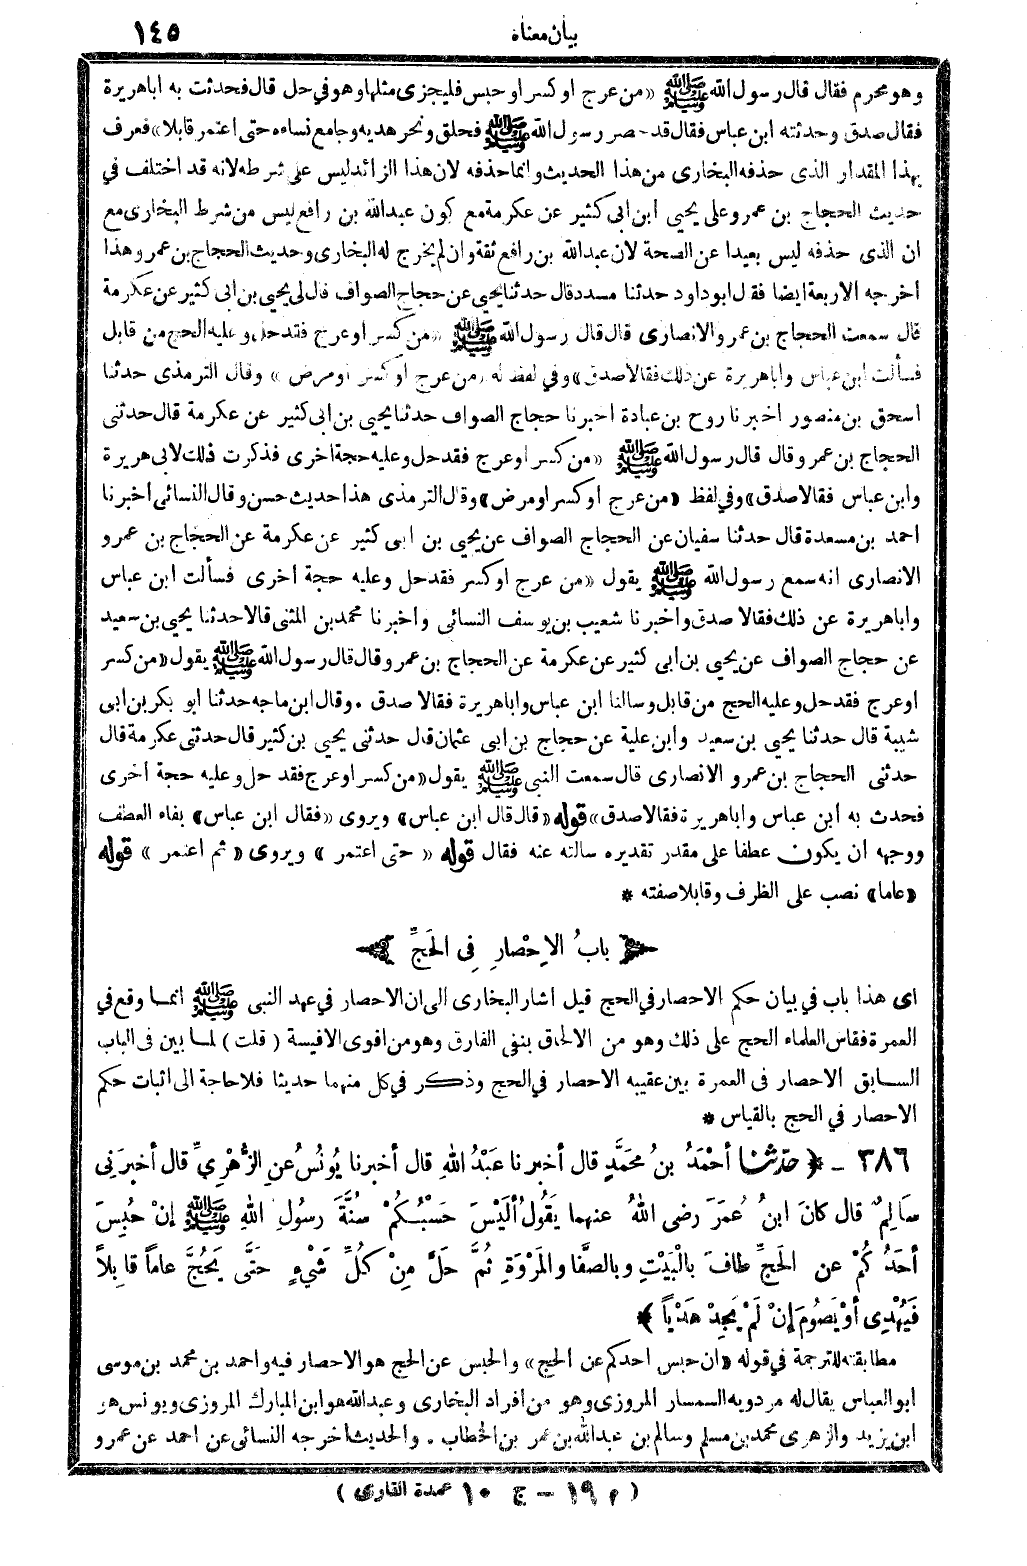 بيان معناه ١٤٥
وهو محرم فقال قال رسول الله ﷺ «من عرج او كسر او حبس فليجزى مثلها وهو في حل قال فحدثت به اباهريرة
فقال صدق وحدثته ابن عباس فقال قد حصر رسول الله ﷺ فحلق ونحر هديه وجامع نساءه حتى اعتمر قابلا» فعرف
بهذا المقدار الذى حذفه البخارى من هذا الحديث وانما حذفه لان هذا الزائد ليس على شرطه لانه قد اختلف في
حديث الحجاج بن عمرو على يحيى ابن ابي كثير عن عكرمة مع كون عبدالله بن رافع ليس من شرط البخارى مع
ان الذى حذفه ليس بعيدا عن الصحة لان عبدالله بن رافع ثقة وان لم يخرج له البخارى وحديث الحجاج بن عمر وهذا
اخرجه الاربعة ايضا فقال ابوداود حدثنا مسدد قال حدثنا يحيى عن حجاج الصواف قال لى يحيى بن ابى كثير عن عكرمة
قال سمعت الحجاج بن عمرو الانصارى قال قال رسول الله ﷺ «من كسر او عرج فقد حل وعليه الحج من قابل
فسألت ابن عباس واباهريرة عن ذلك فقالا صدق» وفي لفظ له «من عرج او كسر او مرض» وقال الترمذى حدثنا
اسحق بن منصور اخبرنا روح بن عبادة اخبرنا حجاج الصواف حدثنا يحيى بن ابى كثير عن عكرمة قال حدثنى
الحجاج بن عمرو قال قال رسول الله ﷺ «من كسر او عرج فقد حل وعليه حجة أخرى فذكرت ذلك لابى هريرة
وابن عباس فقالا صدق» وفي لفظ «من عرج أو كسر او مرض» وقال الترمذى هذا حديث حسن وقال النسائى أخبرنا
احمد بن مسعدة قال حدثنا سفيان عن الحجاج الصواف عن يحيى بن ابى كثير عن عكرمة عن الحجاج بن عمرو
الانصارى انه سمع رسول الله ﷺ يقول «من عرج او كسر فقد حل وعليه حجة أخرى فسألت ابن عباس
واباهريرة عن ذلك فقالا صدق واخبرنا شعيب بن يوسف النسائى واخبرنا محمد بن المثنى قالا حدثنا يحيى بن سعيد
عن حجاج الصواف عن يحيى بن أبى كثير عن عكرمة عن الحجاج بن عمرو قال قال رسول الله ﷺ يقول «من كسر
او عرج فقد حل وعليه الحج من قابل وسالنا ابن عباس واباهريرة فقالا صدق . وقال ابن ماجه حدثنا ابو بكر بن ابى
شيبة قال حدثنا يحيى بن سعيد وابن علية عن حجاج بن ابى عثمان قال حدثنى يحيى بن كثير قال حدثنى عكرمة قال
حدثنى الحجاج بن عمرو الانصارى قال سمعت النبى ﷺ يقول «من كسر او عرج فقد حل وعليه حجة أخرى
فحدث به ابن عباس واباهريرة فقالا صدق» قوله «قال قال ابن عباس» ويروى «فقال ابن عباس» بفاء العطف
ووجهه ان يكون عطفا على مقدر تقديره سالته عنه فقال قوله «حتى اعتمر» ويروى «ثم اعتمر» قوله
«عاما» نصب على الظرف وقابلا صفته *
بابُ الاِحْصارِ فِى الحَجِّ
اى هذا باب في بيان حكم الاحصار في الحج قيل اشار البخارى الى ان الاحصار في عهد النبى ﷺ انما وقع في
العمرة فقاس العلماء الحج على ذلك وهو من الالحاق بنفى الفارق وهو من اقوى الاقيسة (قلت) لما بين فى الباب
السابق الاحصار فى العمرة بين عقيبه الاحصار في الحج وذكر في كل منهما حديثا فلا حاجة الى اثبات حكم
الاحصار في الحج بالقياس *
٣٨٦ - ﴿ حدّثنا أحْمَدُ بنُ مُحَمَّدٍ قال أخبرنا عَبْدُ اللهِ قال أخبرنا يُونُسُ عنِ الزُّهْرِيِّ قال أخبرَنِى
سَالِمٌ قال كانَ ابنُ عُمَرَ رضى اللهُ عنهما يَقُولُ أَلَيْسَ حَسْبُكُمْ سُنَّةَ رسولِ اللهِ ﷺ إنْ حُبِسَ
أحَدُكُمْ عنِ الحَجِّ طافَ بالْبَيْتِ وبالصَّفا والمَرْوَةِ ثُمَّ حَلَّ مِنْ كُلِّ شَيْءٍ حَتَّى يَحُجَّ عاماً قابِلاً
فَيُهْدِى أوْ يَصُومَ إنْ لَمْ يَجِدْ هَدْياً ﴾
مطابقته للترجمة في قوله «ان حبس احدكم عن الحج» والحبس عن الحج هو الاحصار فيه واحمد بن محمد بن موسى
ابو العباس يقال له مردويه السمسار المروزى وهو من افراد البخارى وعبدالله هو ابن المبارك المروزى ويونس هو
ابن يزيد والزهرى محمد بن مسلم وسالم بن عبدالله بن عمر بن الخطاب . والحديث أخرجه النسائى عن احمد عن عمرو
(م ١٩ - ج ١٠ عمدة القارى)